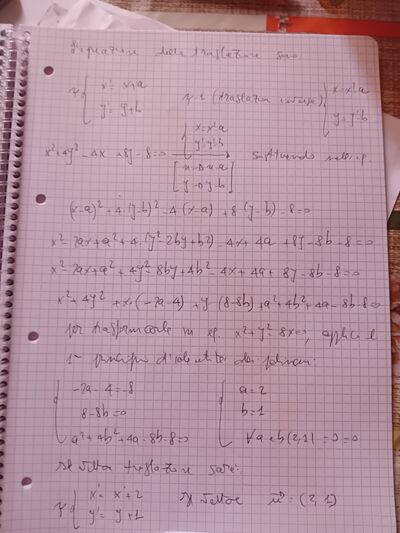 L'equazione della traslazione sono
τ { x' = x+a
y' = y+b
τ-1 (traslazione inversa) { x = x'-a
y = y'-b
{ x = x'-a
y = y'-b
x²+4y²-4x+8y-8=0 → sostituendo nell'eq
[ x → x-a
y → y-b ]
(x-a)²+4·(y-b)²-4·(x-a)+8(y-b)-8=0
x²-2ax+a²+4·(y²-2by+b²)-4x+4a+8y-8b-8=0
x²-2ax+a²+4y²-8by+4b²-4x+4a+8y-8b-8=0
x²+4y²+x·(-2a-4)+y(8-8b)+a²+4b²+4a-8b-8=0
per trasformarla in eq. x²+4y²-8x=0, applico il
1° principio d'identità dei polinomi:
{ -2a-4=-8
8-8b=0
a²+4b²+4a-8b-8=0
{ a=2
b=1
∀a e b(2,1) => 0=0
Il vettore traslazione sarà:
τ { x' = x+2
y' = y+1
Il vettore u = (2,1)